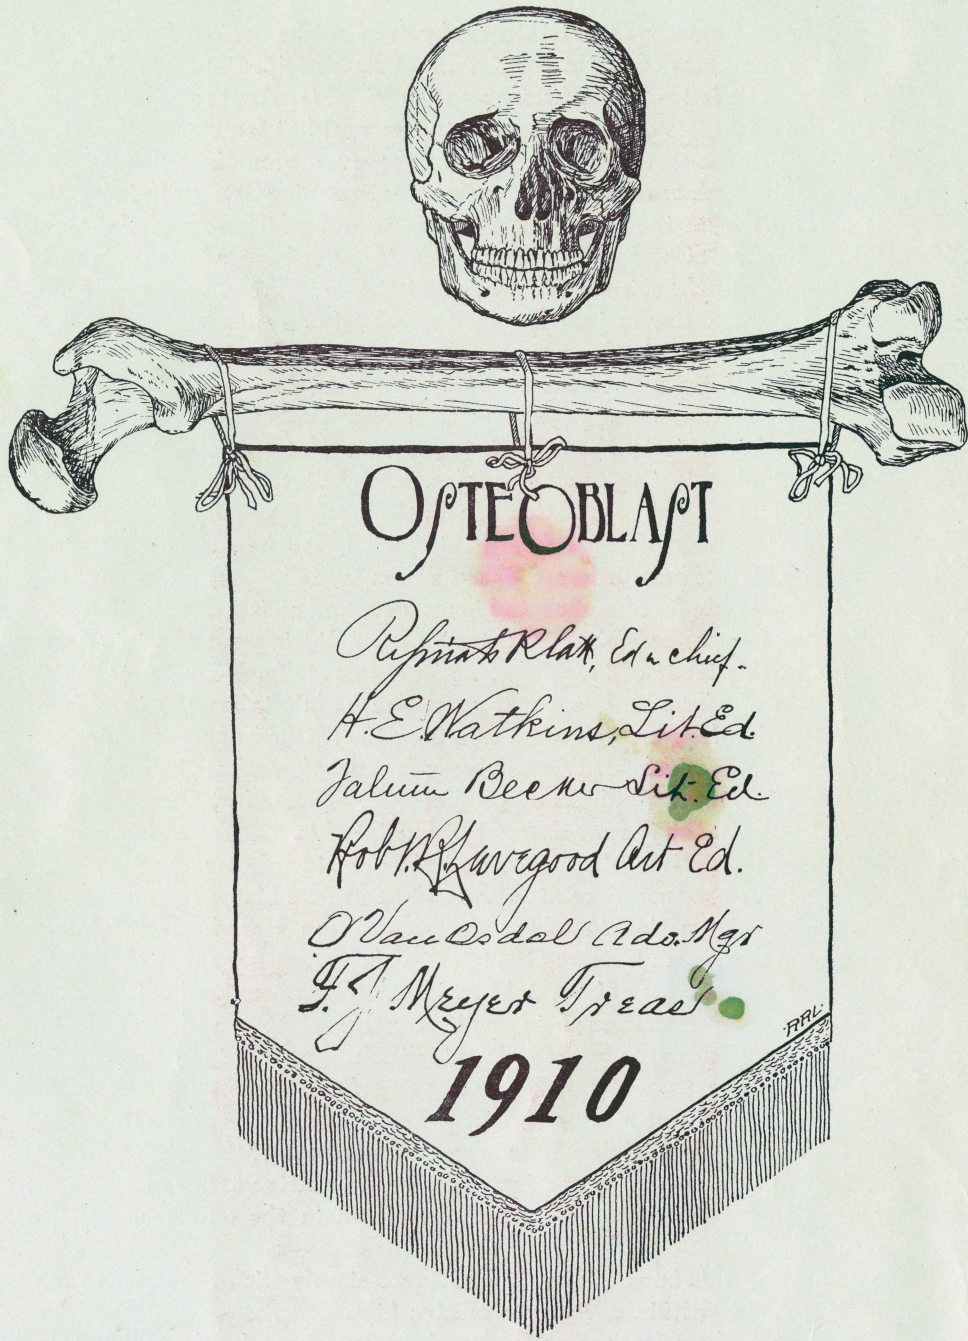 OSTEOBLAST
Platt, Ed n chief.
H. E. Watkins, Lit. Ed.
Becker Lit. Ed.
Robt. R. Lavegood Art Ed.
O Van Osdol Adv. Mgr
F. J. Meyer Treas
RRL.
1910